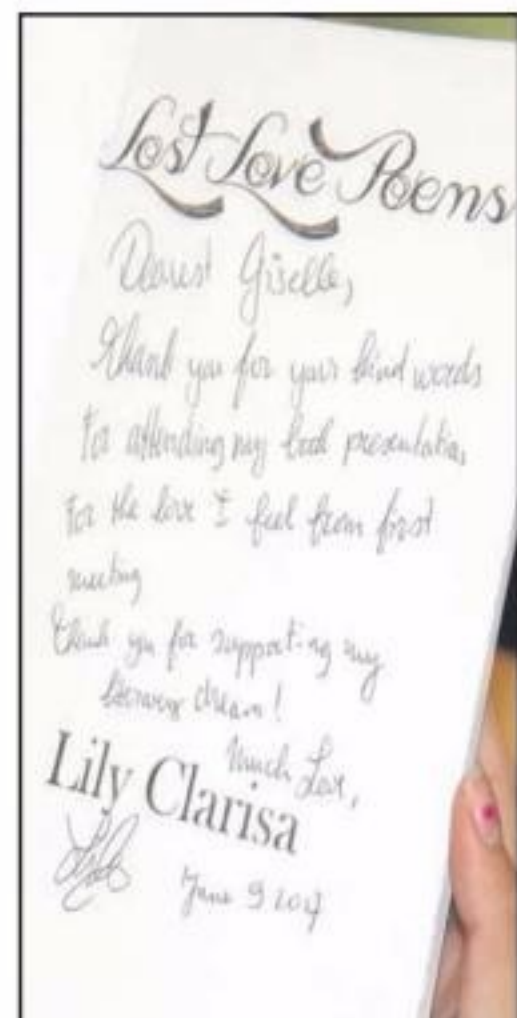 Lost Love Poems
Dearest Giselle,
Thank you for your kind words
For attending my book presentation,
For the love I feel from first
meeting
Thank you for supporting my
literary dream!
Much Love,
Lily Clarisa
June 9 2017